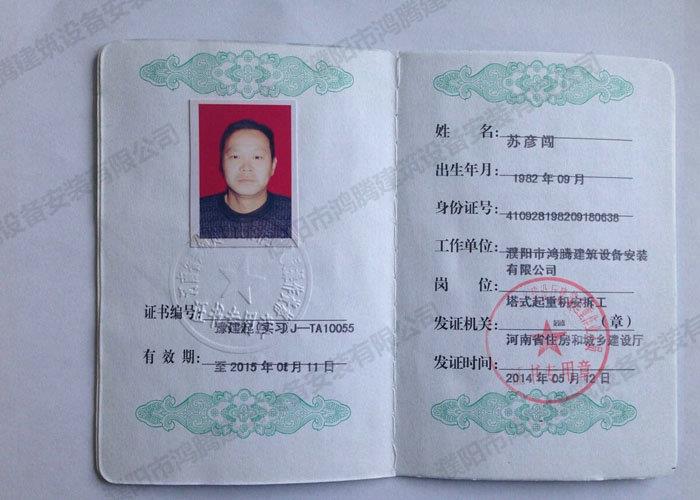 证书编号: 豫建起(实习)J—TA10055
有效期: 至 2015 年 01 月 11 日
姓 名: 苏彦闯
出生年月: 1982 年 09 月
身份证号: 410928198209180638
工作单位: 濮阳市鸿腾建筑设备安装
有限公司
岗 位: 塔式起重机安拆工
发证机关: (章)
河南省住房和城乡建设厅
发证时间: 2014 年 05 月 12 日
证书专用章
濮阳市鸿腾建筑设备安装有限公司